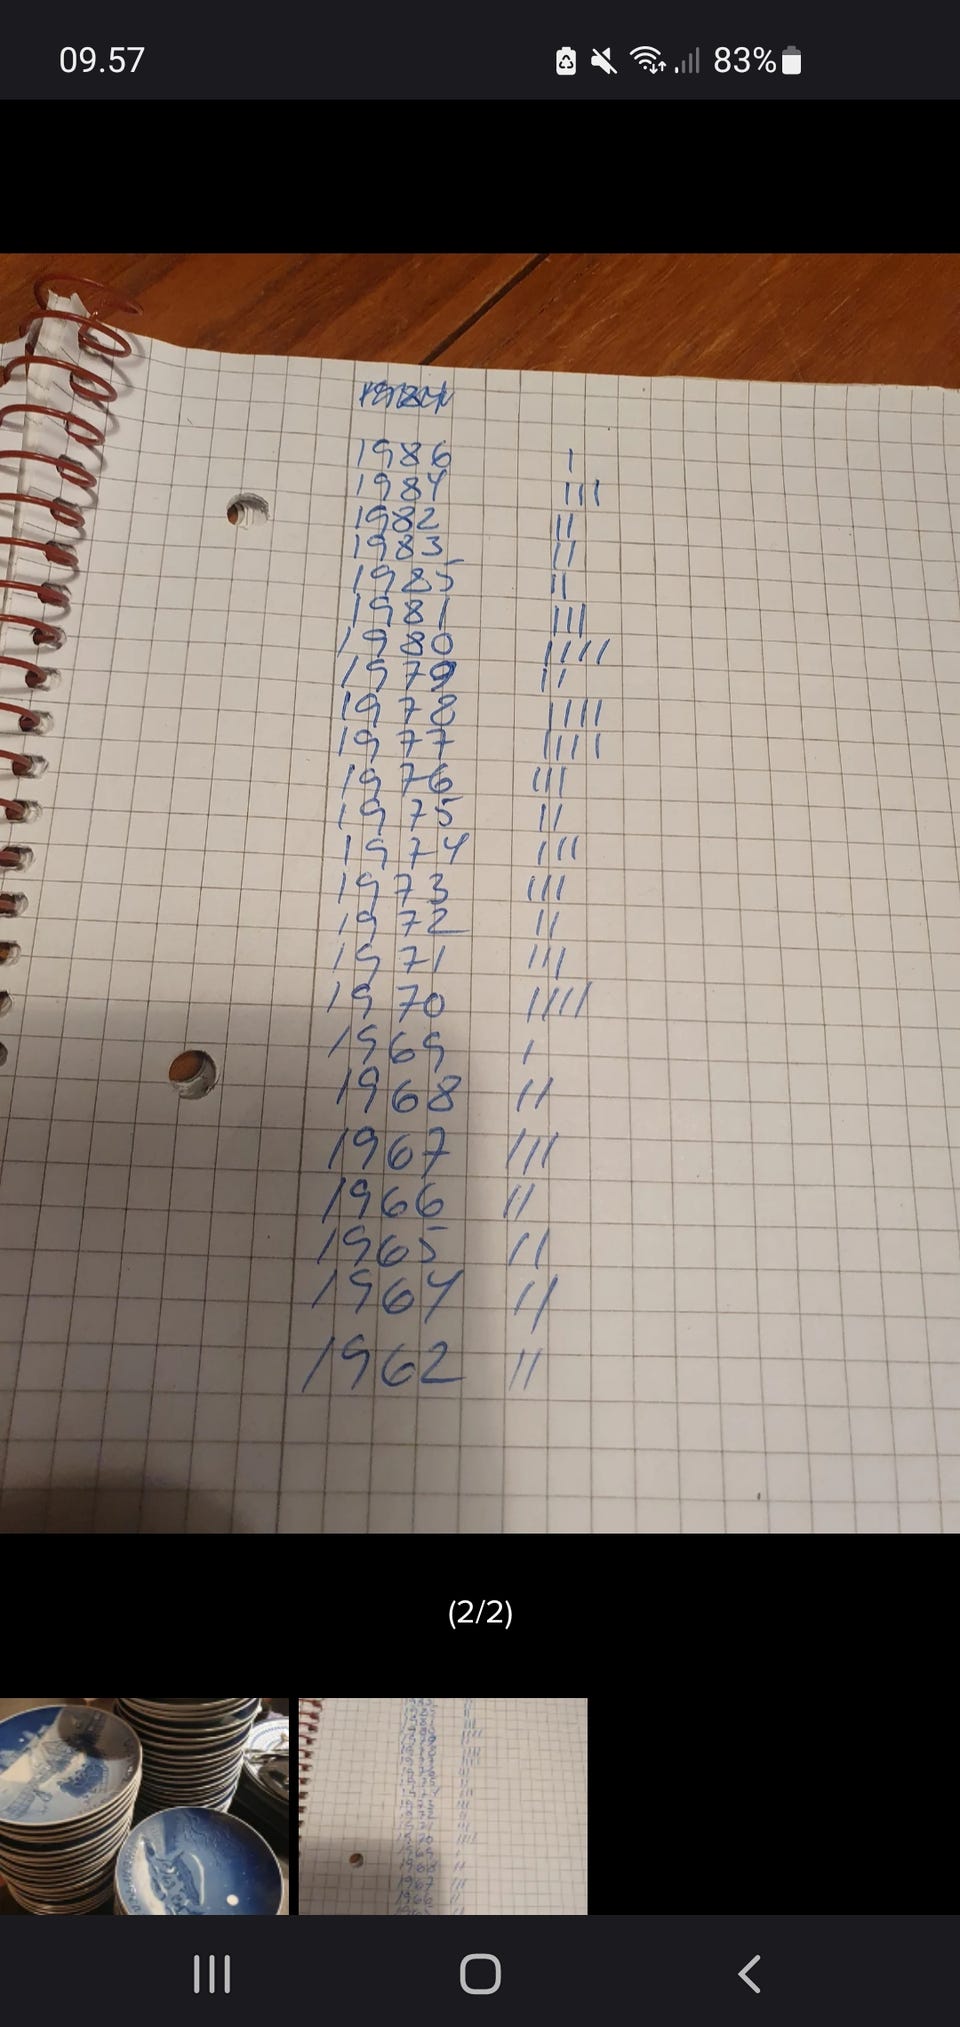 09.57 83%
1986 |
1984 |||
1982 ||
1983 ||
1985 ||
1981 |||
1980 ||||
1979 ||
1978 ||||
1977 ||||
1976 |||
1975 ||
1974 |||
1973 |||
1972 ||
1971 |||
1970 ||||
1969 |
1968 ||
1967 |||
1966 ||
1965 ||
1964 ||
1962 ||
(2/2)